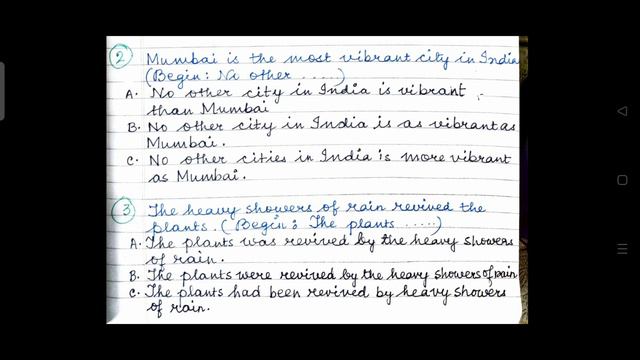 2 Mumbai is the most vibrant city in India
(Begin: No other .....)
A. No other city in India is vibrant
than Mumbai
B. No other city in India is as vibrant as
Mumbai.
C. No other cities in India is more vibrant
as Mumbai.
3 The heavy showers of rain revived the
plants. (Begin: The plants .....)
A. The plants was revived by the heavy showers
of rain.
B. The plants were revived by the heavy showers of rain
C. The plants had been revived by heavy showers
of rain.